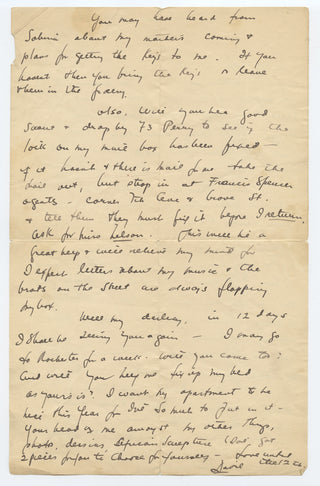 You may have heard from
about my mother's coming &
plans for getting the keys to me. If you
havent then you bring the keys or leave
them in the
Also, will you be a good
& drop by 73 Perry to see if the
lock on my mail box has been fixed —
if it hasnt & there is mail for me take the
mail out, but stop in at Francis Spencer
agents — corner 7th Ave & Grove St.
& tell them they must fix it before I return.
Ask for Miss Nelson. This will be a
great help & will relieve my mind for
I expect letters about my music & the
brats on the street are always flapping
my box.
Well my darling, in 12 days
I shall be seeing you again — I may go
to Rochester for a week. Will you come too?
And will you help me fix up my bed
as yours is? I want my apartment to be
nice this year for I've so much to put in it —
Your head of me amongst my other things,
photo, African Sculpture (I've got
2 pieces for you to choose for yourself) — Love until
the 12th